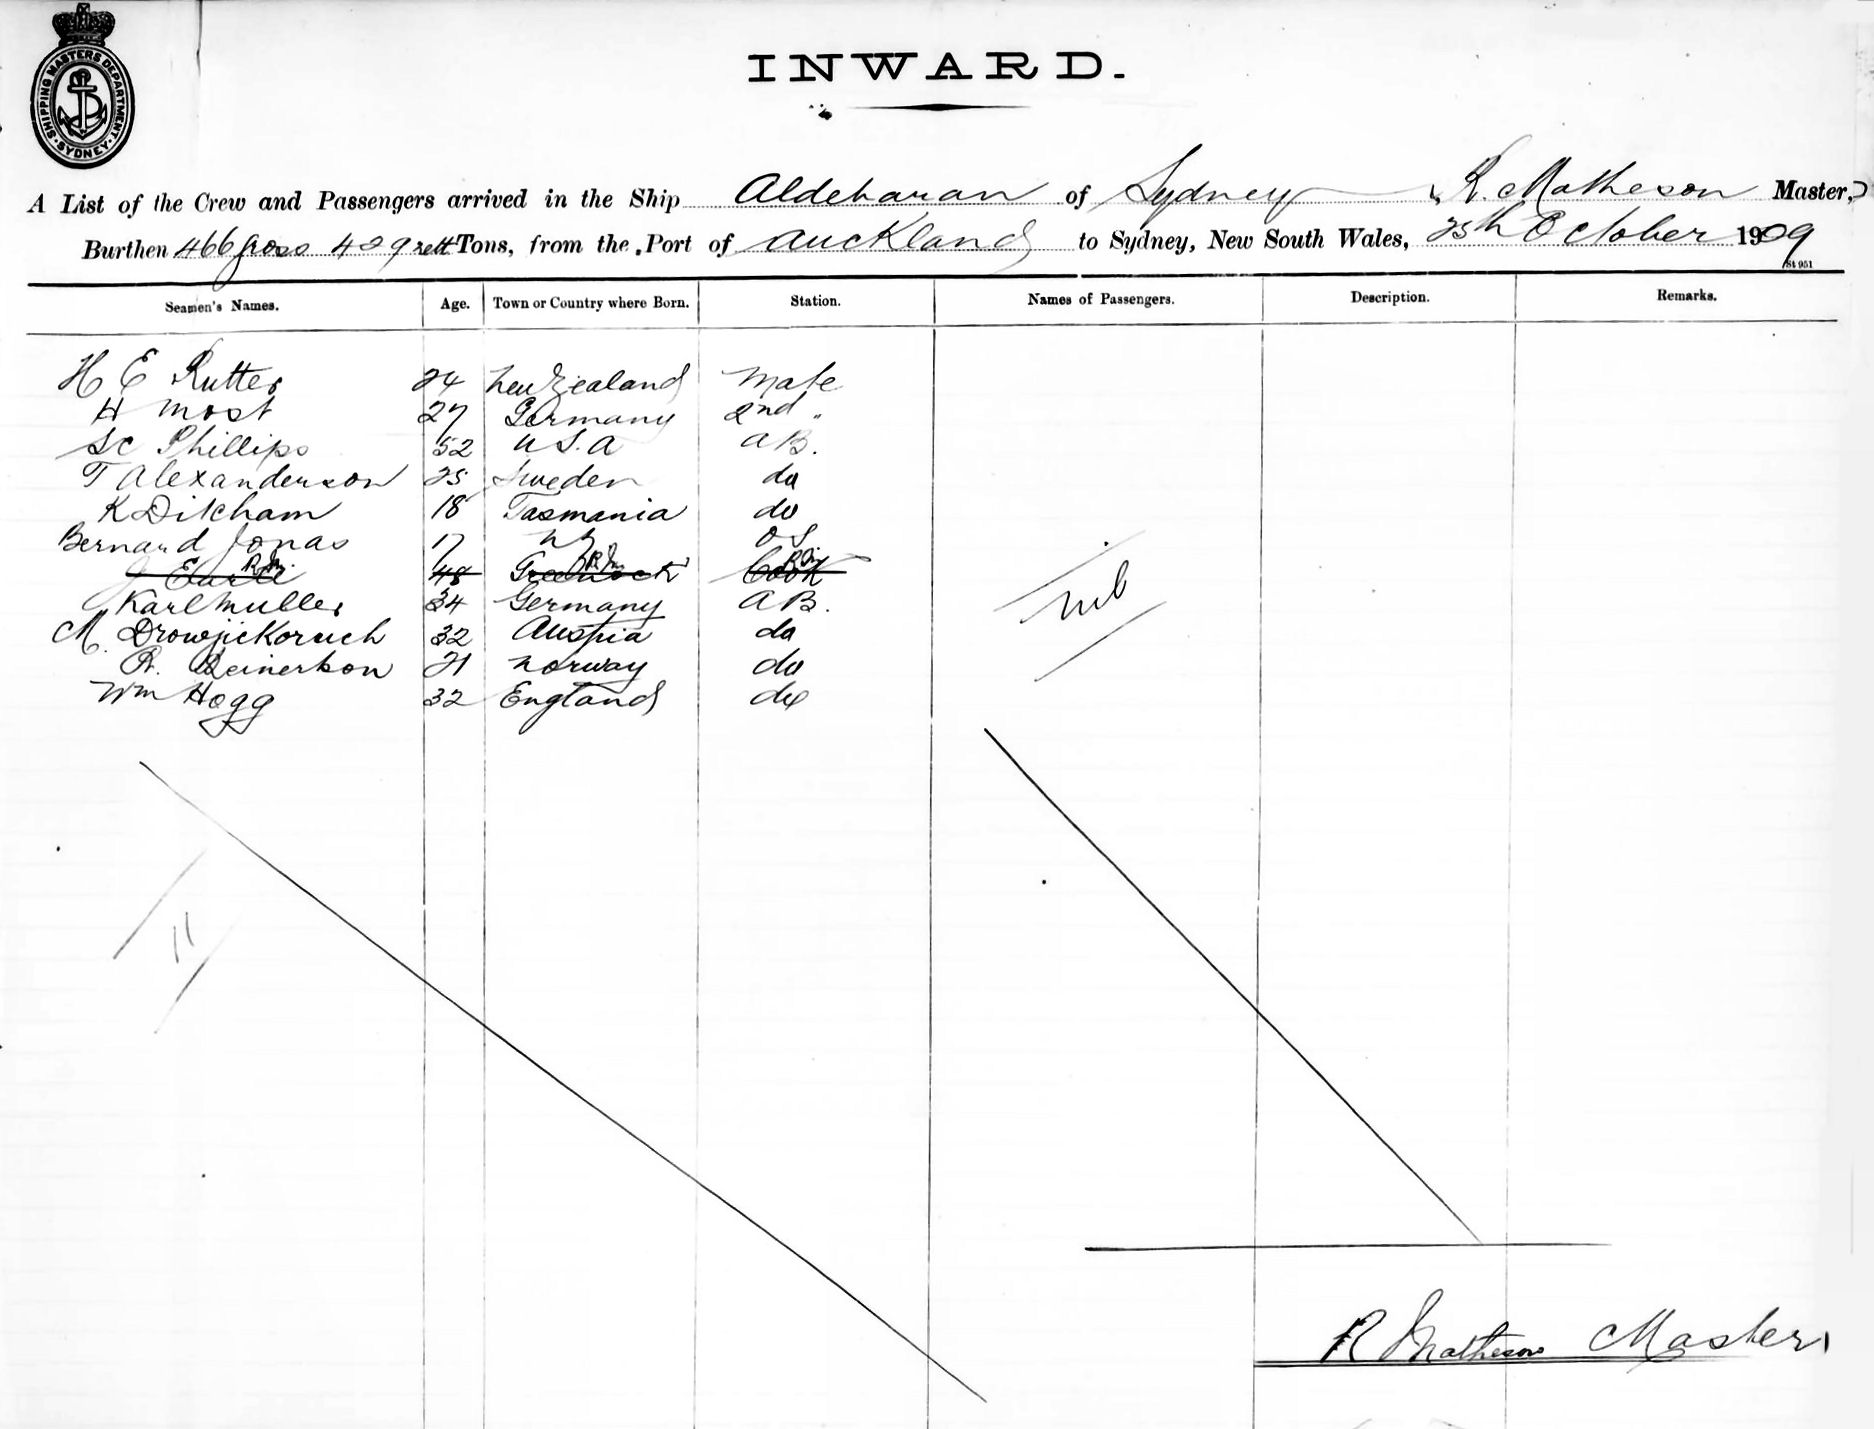 SHIPPING MASTERS DEPARTMENT SYDNEY
INWARD.
A List of the Crew and Passengers arrived in the Ship Aldebaran of Sydney, R. Matheson Master,
Burthen 466 gross 409 nett Tons, from the Port of Auckland to Sydney, New South Wales, 25th October 1909
St 951
Seamen's Names. Age. Town or Country where Born. Station. Names of Passengers. Description. Remarks.
H E Rutter 24 New Zealand Mate
H Most 27 Germany 2nd "
Phillips 52 U S. A A B.
T Alexanderson 25 Sweden do
K Ditcham 18 Tasmania do
Bernard Jonas 17 N Z O S
J Earle R.M. 48 Greenock R.M. Cook R.M.
Karl Muller 34 Germany A B.
M. 32 Austria do
R. Reinertson 21 Norway do
Wm Hogg 32 England do
nil
11
R Matheson Master